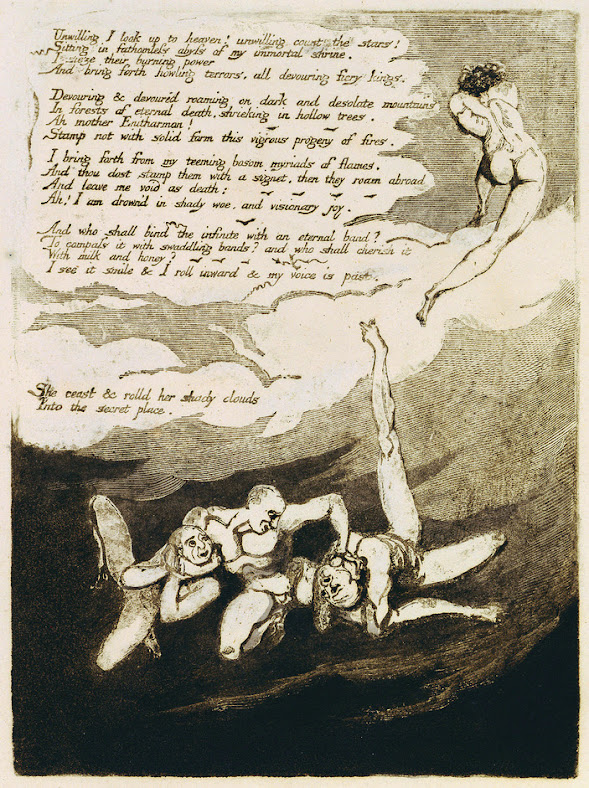 Unwilling I look up to heaven! unwilling count the stars!
Sitting in fathomleſs abyſs of my immortal shrine.
I sieze their burning power
And bring forth howling terrors, all devouring fiery kings.
Devouring & devoured roaming on dark and desolate mountains
In forests of eternal death, shrieking in hollow trees.
Ah mother Enitharmon!
Stamp not with solid form this vig'rous progeny of fires.
I bring forth from my teeming bosom myriads of flames.
And thou dost stamp them with a signet, then they roam abroad
And leave me void as death:
Ah! I am drown'd in shady woe, and visionary joy.
And who shall bind the infinite with an eternal band?
To compaſs it with swaddling bands? and who shall cherish it
With milk and honey?
I see it smile & I roll inward & my voice is past.
She ceast & rolld her shady clouds
Into the secret place.